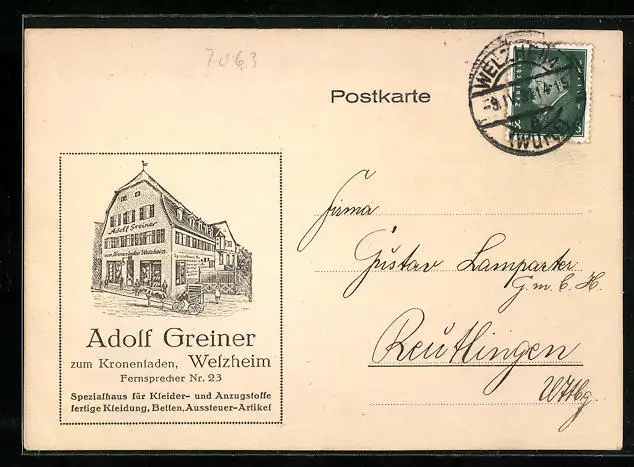 7063
Postkarte
WELZHEIM
(Württ)
Adolf Greiner
zum Kronenladen Welzheim.
Adolf Greiner
zum Kronenladen, Welzheim
Fernsprecher Nr. 23
Spezialhaus für Kleider- und Anzugstoffe
fertige Kleidung, Betten, Aussteuer-Artikel
Firma
Gustav Lamparter
G. m. b. H.
Reutlingen
Wttbg.